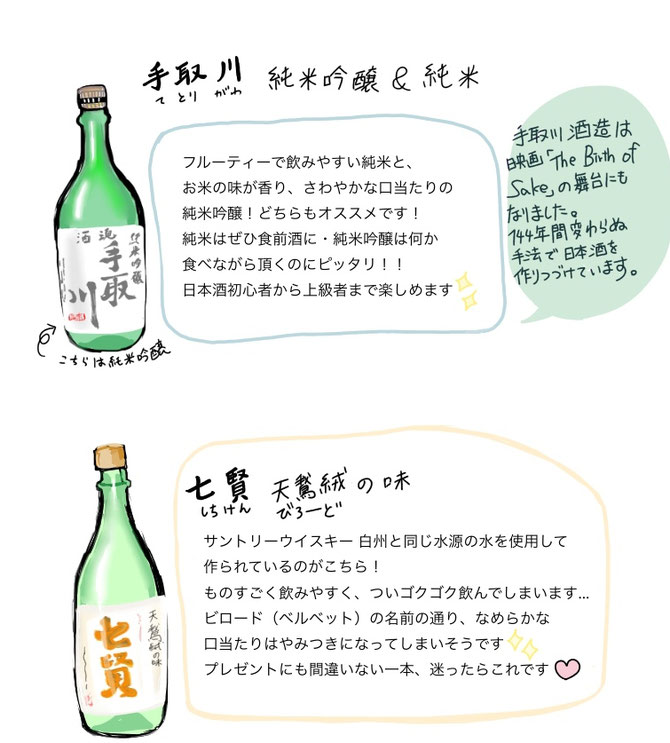 手取川 純米吟醸 & 純米
てとりがわ
フルーティーで飲みやすい純米と、
お米の味が香り、さわやかな口当たりの
純米吟醸！どちらもオススメです！
純米はぜひ食前酒に・純米吟醸は何か
食べながら頂くのにピッタリ！！
日本酒初心者から上級者まで楽しめます
手取川酒造は
映画「The Birth of
Sake」の舞台にも
なりました。
144年間変わらぬ
手法で日本酒を
作りつづけています。
純米吟醸
手取川
こちらは純米吟醸
七賢 天鵞絨の味
しちけん びろーど
サントリーウイスキー 白州と同じ水源の水を使用して
作られているのがこちら！
ものすごく飲みやすく、ついゴクゴク飲んでしまいます...
ビロード（ベルベット）の名前の通り、なめらかな
口当たりはやみつきになってしまいそうです
プレゼントにも間違いない一本、迷ったらこれです
天鵞絨の味
七賢